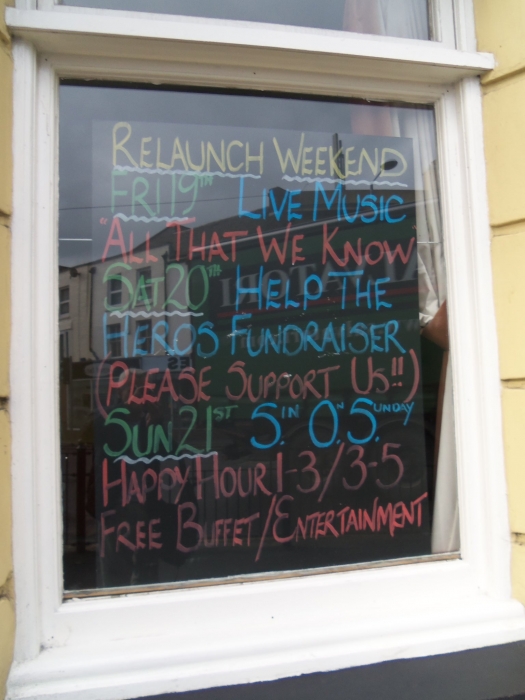 RELAUNCH WEEKEND
FRI 19TH LIVE MUSIC
"ALL THAT WE KNOW
SAT 20TH HELP THE
HEROS FUNDRAISER
(PLEASE SUPPORT US!!)
SUN 21ST S.IN O.N S.UNDAY
HAPPY HOUR 1-3/3-5
FREE BUFFET/ENTERTAINMENT